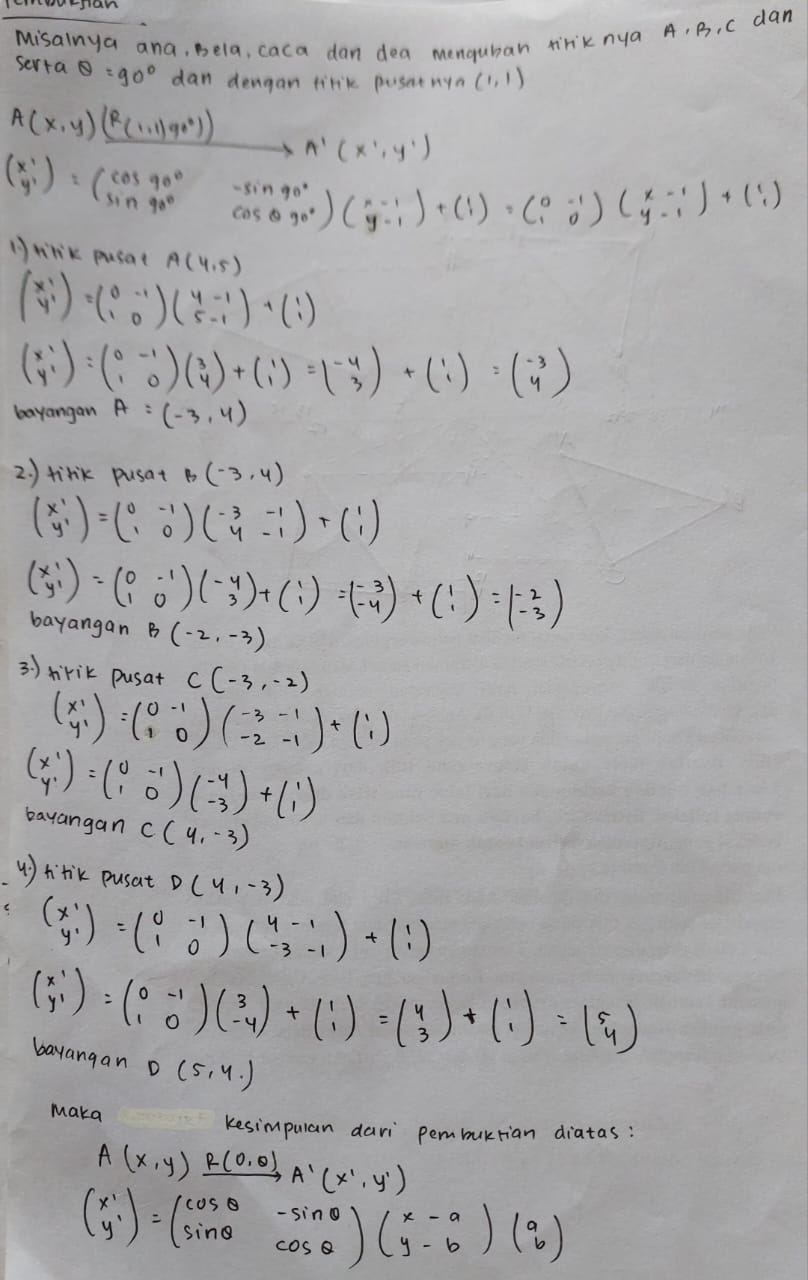 Pembuktian
Misalnya ana, Bela, caca dan dea mengubah titik nya A, B, C dan
serta θ = 90° dan dengan titik pusatnya (1,1)
A(x,y) (R(1,1)90°)) → A'(x',y')
(x' y') = (cos 90° -sin 90° sin 90° cos θ 90°) (x-1 y-1) + (1 1) = (0 -1 1 0) (x-1 y-1) + (1 1)
1) titik pusat A(4,5)
(x' y') = (0 -1 1 0) (4-1 5-1) + (1 1)
(x' y') = (0 -1 1 0) (3 4) + (1 1) = (-4 3) + (1 1) = (-3 4)
bayangan A = (-3,4)
2.) titik pusat B (-3,4)
(x' y') = (0 -1 1 0) (-3 -1 4 -1) + (1 1)
(x' y') = (0 -1 1 0) (-4 3) + (1 1) = (-3 -4) + (1 1) = (-2 -3)
bayangan B (-2,-3)
3.) titik pusat C (-3,-2)
(x' y') = (0 -1 1 0) (-3 -1 -2 -1) + (1 1)
(x' y') = (0 -1 1 0) (-4 -3) + (1 1)
bayangan C (4,-3)
4.) titik pusat D (4,-3)
(x' y') = (0 -1 1 0) (4 -1 -3 -1) + (1 1)
(x' y') = (0 -1 1 0) (3 -4) + (1 1) = (4 3) + (1 1) = (5 4)
bayangan D (5,4.)
Maka kesimpulan dari pembuktian diatas :
A (x,y) R(0,θ) → A'(x',y')
(x' y') = (cos θ -sin θ sin θ cos θ) (x - a y - b) (a b)